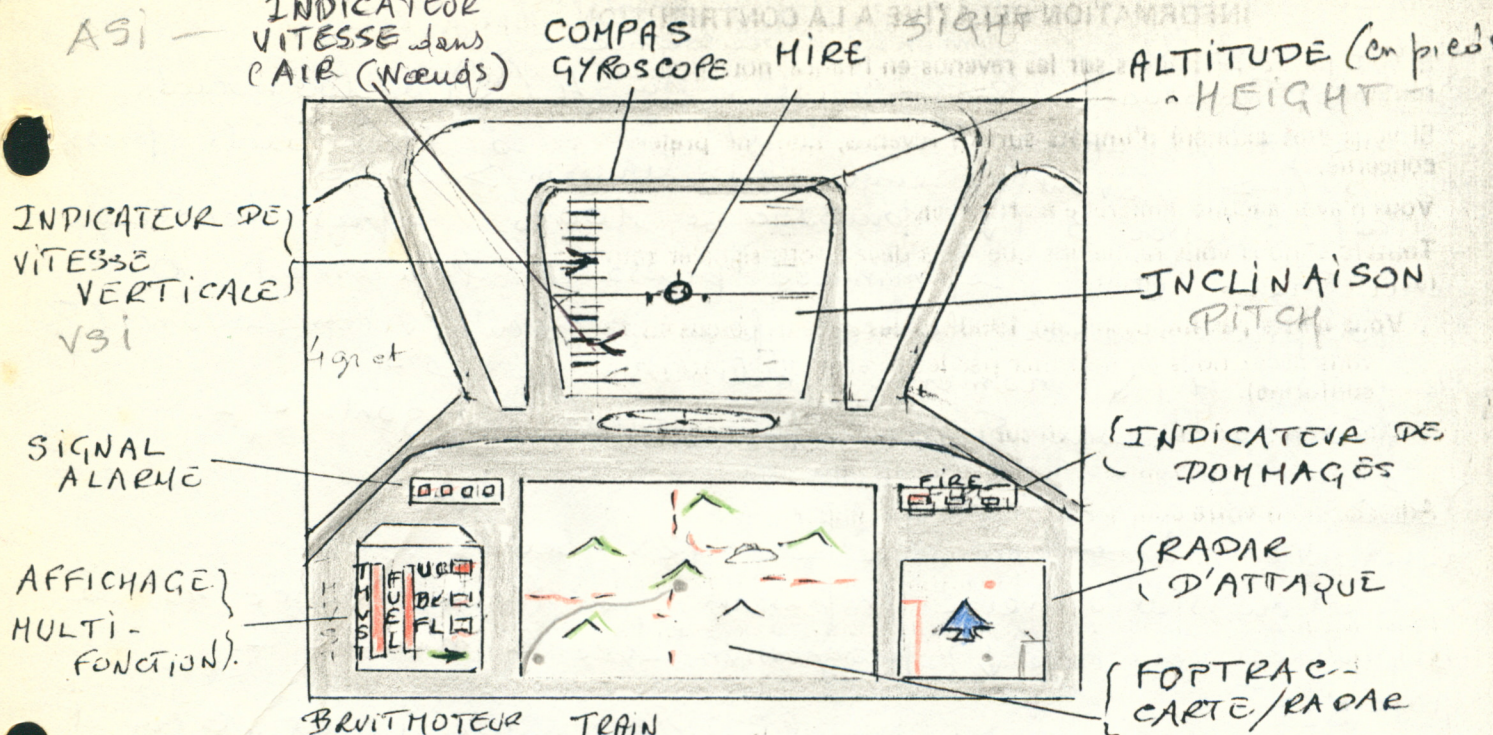 ASI —
INDICATEUR
VITESSE dans
l'AIR (Nœuds)
COMPAS
GYROSCOPE
MIRE
SIGHT
ALTITUDE (en pieds
- HEIGHT -
INDICATEUR DE
VITESSE
VERTICALE
VSI
INCLINAISON
PITCH
SIGNAL
ALARME
INDICATEUR DE
DOMMAGES
FIRE
AFFICHAGE
MULTI-
FONCTION).
THRUST
FUEL
BR
FL
RADAR
D'ATTAQUE
FOPTRAC--
CARTE/RADAR
BRUIT MOTEUR
TRAIN